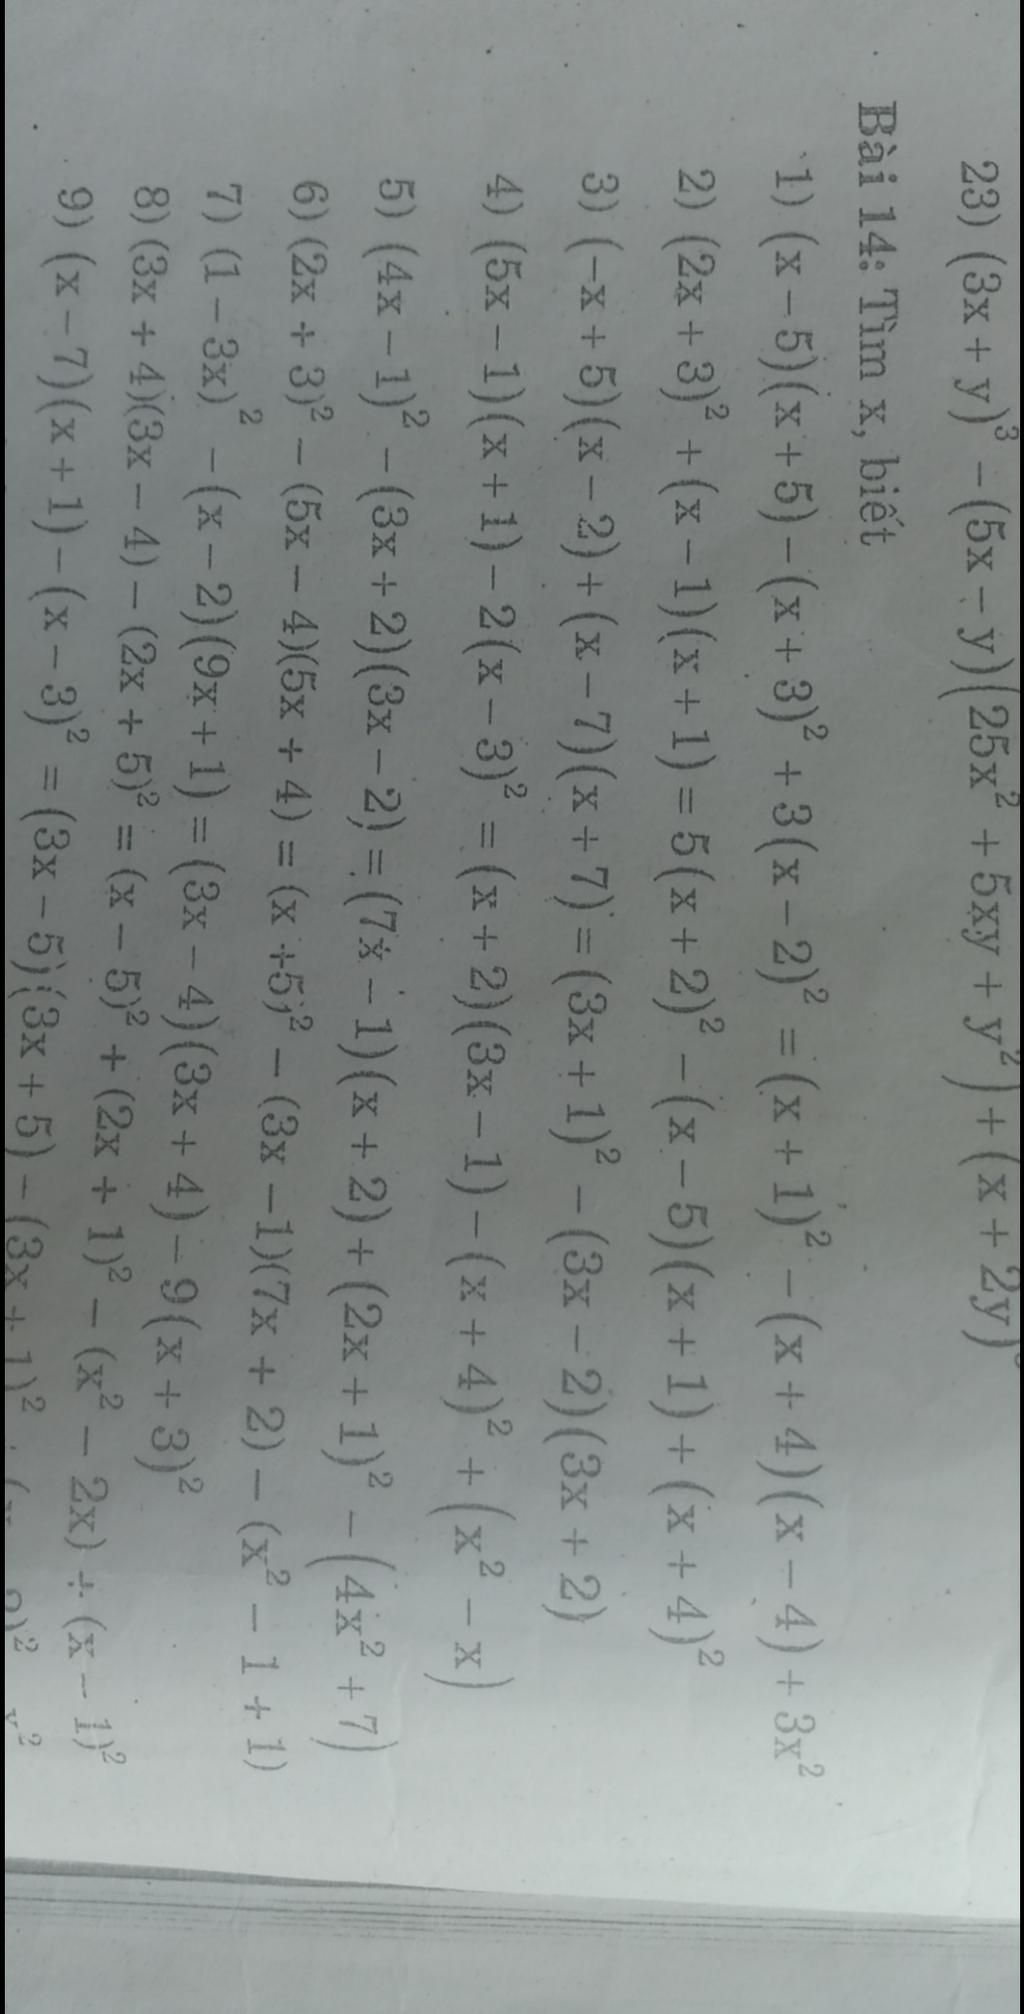 23) (3x + y)³ − (5x − y)(25x² + 5xy + y²) + (x + 2y)
Bài 14: Tìm x, biết
1) (x − 5)(x + 5) − (x + 3)² + 3(x − 2)² = (x + 1)² − (x + 4)(x − 4) + 3x²
2) (2x + 3)² + (x − 1)(x + 1) = 5(x + 2)² − (x − 5)(x + 1) + (x + 4)²
3) (−x + 5)(x − 2) + (x − 7)(x + 7) = (3x + 1)² − (3x − 2)(3x + 2)
4) (5x − 1)(x + 1) − 2(x − 3)² = (x + 2)(3x − 1) − (x + 4)² + (x² − x)
5) (4x − 1)² − (3x + 2)(3x − 2) = (7x − 1)(x + 2) + (2x + 1)² − (4x² + 7)
6) (2x + 3)² − (5x − 4)(5x + 4) = (x + 5)² − (3x − 1)(7x + 2) − (x² − 1 + 1)
7) (1 − 3x)² − (x − 2)(9x + 1) = (3x − 4)(3x + 4) − 9(x + 3)²
8) (3x + 4)(3x − 4) − (2x + 5)² = (x − 5)² + (2x + 1)² − (x² − 2x) + (x − 1)²
9) (x − 7)(x + 1) − (x − 3)² = (3x − 5)(3x + 5) − (3x + 1)²